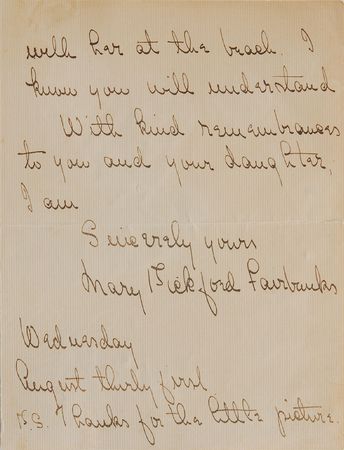 with her at the beach. I
know you will understand
With kind remembrances
to you and your daughter,
I am
Sincerely yours
Mary Pickford Fairbanks
Wednesday
August thirty first
P.S. Thanks for the little picture.